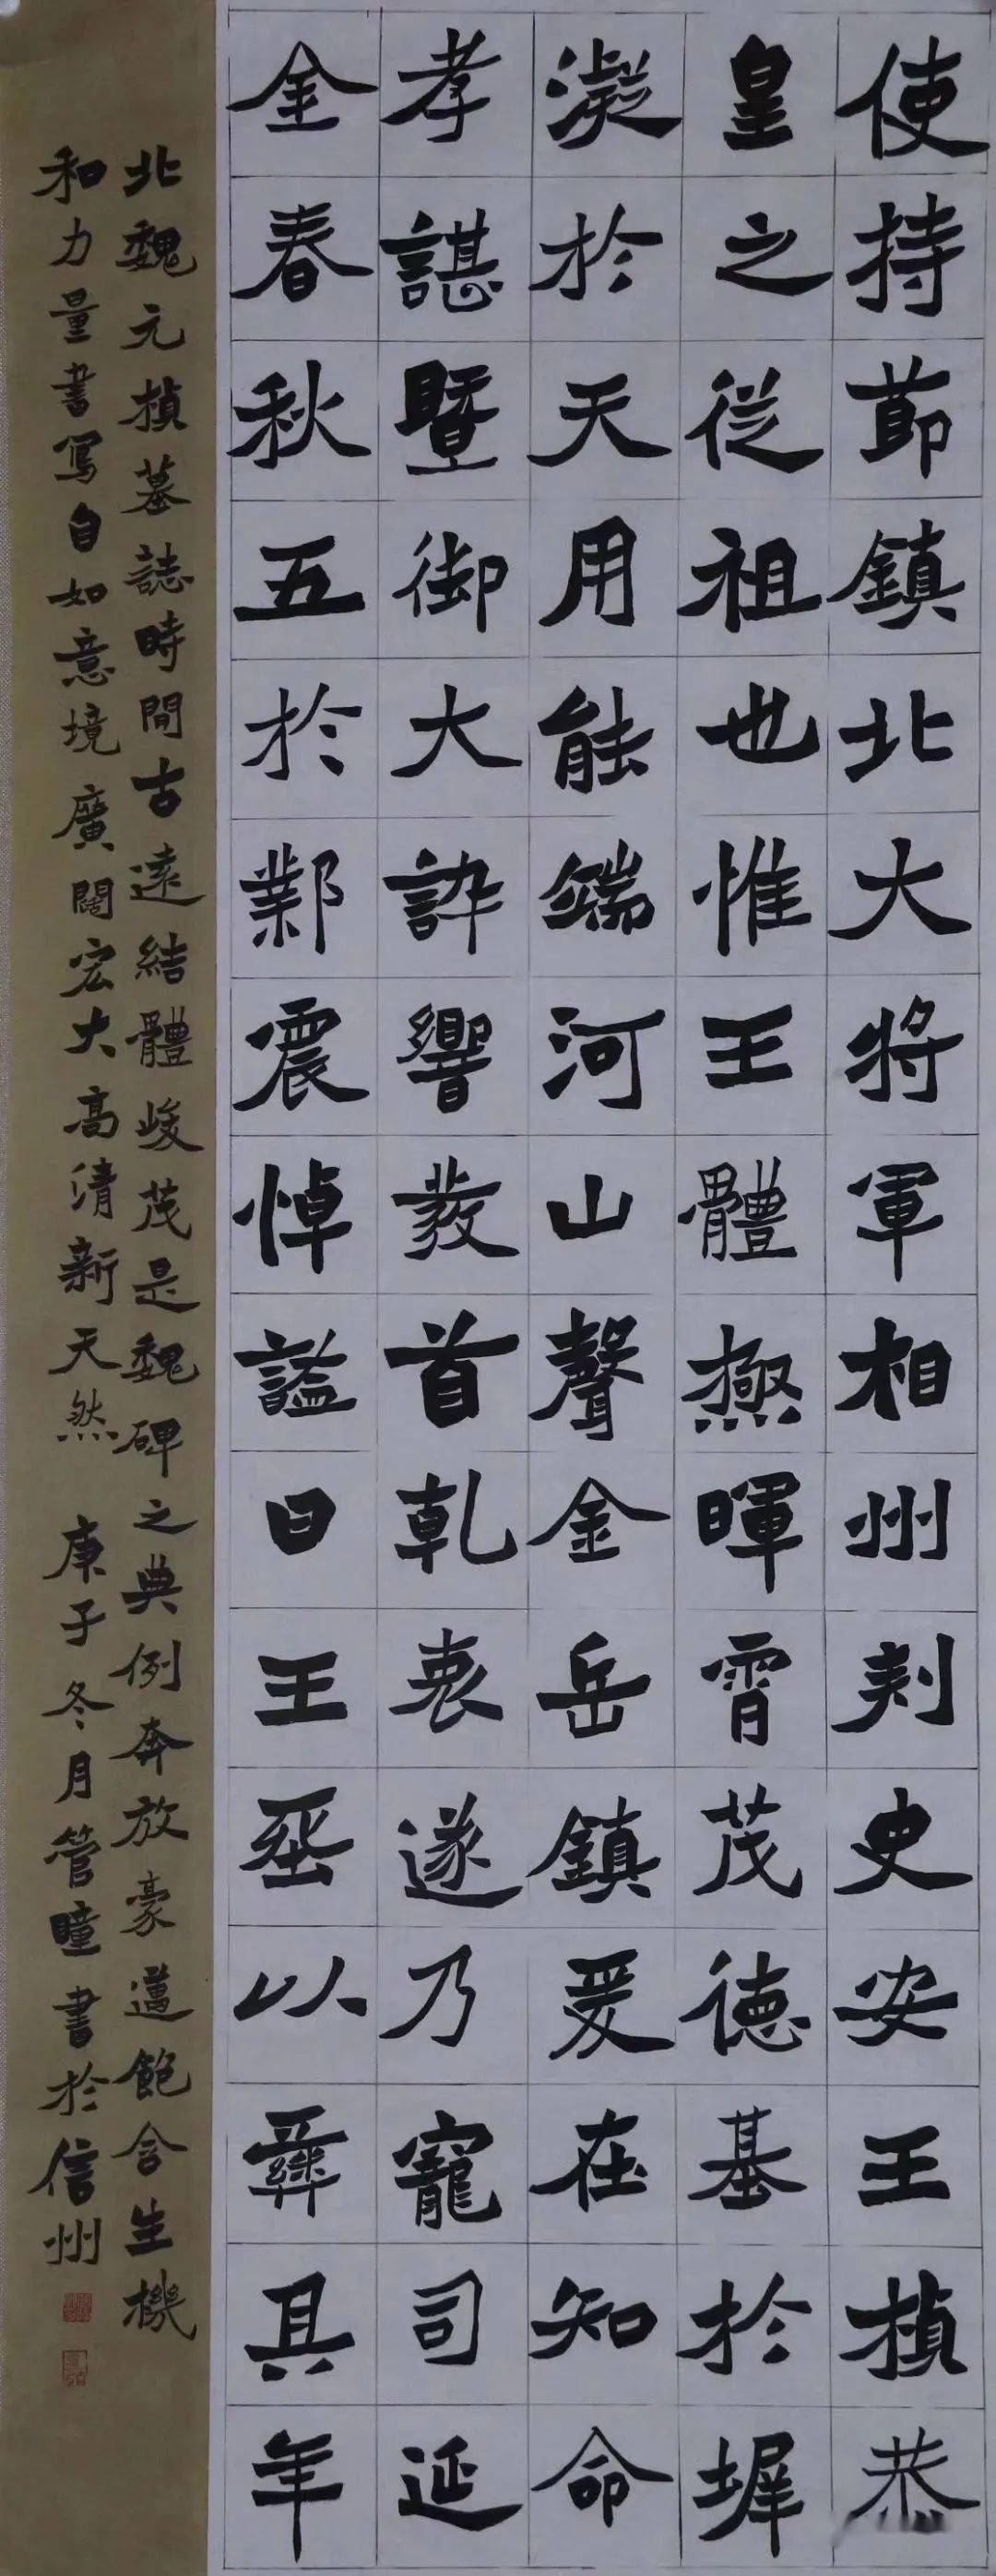 使持節鎮北大將軍相州刾史安王楨恭
皇之從祖也惟王體極暉霄茂德基於墀
凝於天用能端河山聲金岳鎮爰在知命
孝諶暨御大訊響發首乾衷遂乃寵司延
金春秋五於鄴震悼謚曰王葬以彝具年
北魏元楨墓誌時間古遠結體峻茂是魏碑之典例奔放豪邁飽含生機
和力量書寫自如意境廣闊宏大高清新天然 庚子冬月管瞳書於信州